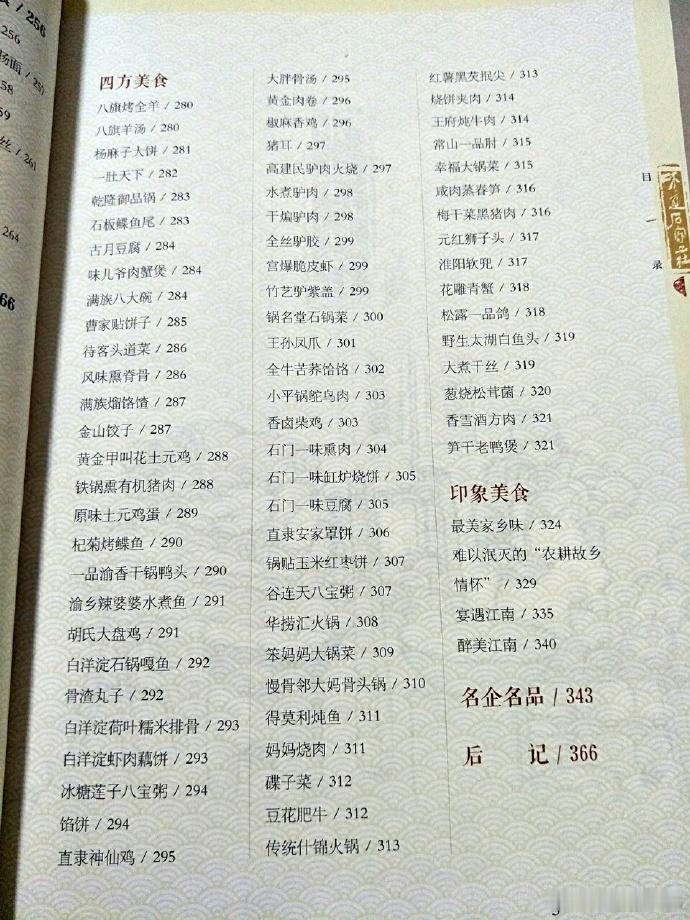 256
256
257
58
59
261
264
66
四方美食
八旗烤全羊 / 280
八旗羊汤 / 280
杨麻子大饼 / 281
一肚天下 / 282
乾隆御品锅 / 283
石板鲽鱼尾 / 283
古月豆腐 / 284
味儿爷肉蟹煲 / 284
满族八大碗 / 284
曹家贴饼子 / 285
待客头道菜 / 286
风味熏脊骨 / 286
满族熘饹馇 / 287
金山饺子 / 287
黄金甲叫花土元鸡 / 288
铁锅熏有机猪肉 / 288
原味土元鸡蛋 / 289
杞菊烤鲽鱼 / 290
一品渝香干锅鸭头 / 290
渝乡辣婆婆水煮鱼 / 291
胡氏大盘鸡 / 291
白洋淀石锅嘎鱼 / 292
骨渣丸子 / 292
白洋淀荷叶糯米排骨 / 293
白洋淀虾肉藕饼 / 293
冰糖莲子八宝粥 / 294
馅饼 / 294
直隶神仙鸡 / 295
大胖骨汤 / 295
黄金肉卷 / 296
椒麻香鸡 / 296
猪耳 / 297
高建民驴肉火烧 / 297
水煮驴肉 / 298
干煸驴肉 / 298
全丝驴胶 / 299
宫爆脆皮虾 / 299
竹艺驴紫盖 / 299
锅名堂石锅菜 / 300
王孙凤爪 / 301
全牛苦荞饸饹 / 302
小平锅鸵鸟肉 / 303
香卤柴鸡 / 303
石门一味熏肉 / 304
石门一味缸炉烧饼 / 305
石门一味豆腐 / 305
直隶安家罩饼 / 306
锅贴玉米红枣饼 / 307
谷连天八宝粥 / 307
华捞汇火锅 / 308
笨妈妈大锅菜 / 309
慢骨邻大妈骨头锅 / 310
得莫利炖鱼 / 311
妈妈烧肉 / 311
碟子菜 / 312
豆花肥牛 / 312
传统什锦火锅 / 313
红薯黑芡抿尖 / 313
烧饼夹肉 / 314
王府炖牛肉 / 314
常山一品肘 / 315
幸福大锅菜 / 315
咸肉蒸春笋 / 316
梅干菜黑猪肉 / 316
元红狮子头 / 317
淮阳软兜 / 317
花雕青蟹 / 318
松露一品鸽 / 318
野生太湖白鱼头 / 319
大煮干丝 / 319
葱烧松茸菌 / 320
香雪酒方肉 / 321
笋干老鸭煲 / 321
印象美食
最美家乡味 / 324
难以泯灭的“农耕故乡
情怀” / 329
宴遇江南 / 335
醉美江南 / 340
名企名品 / 343
后 记 / 366
目
录